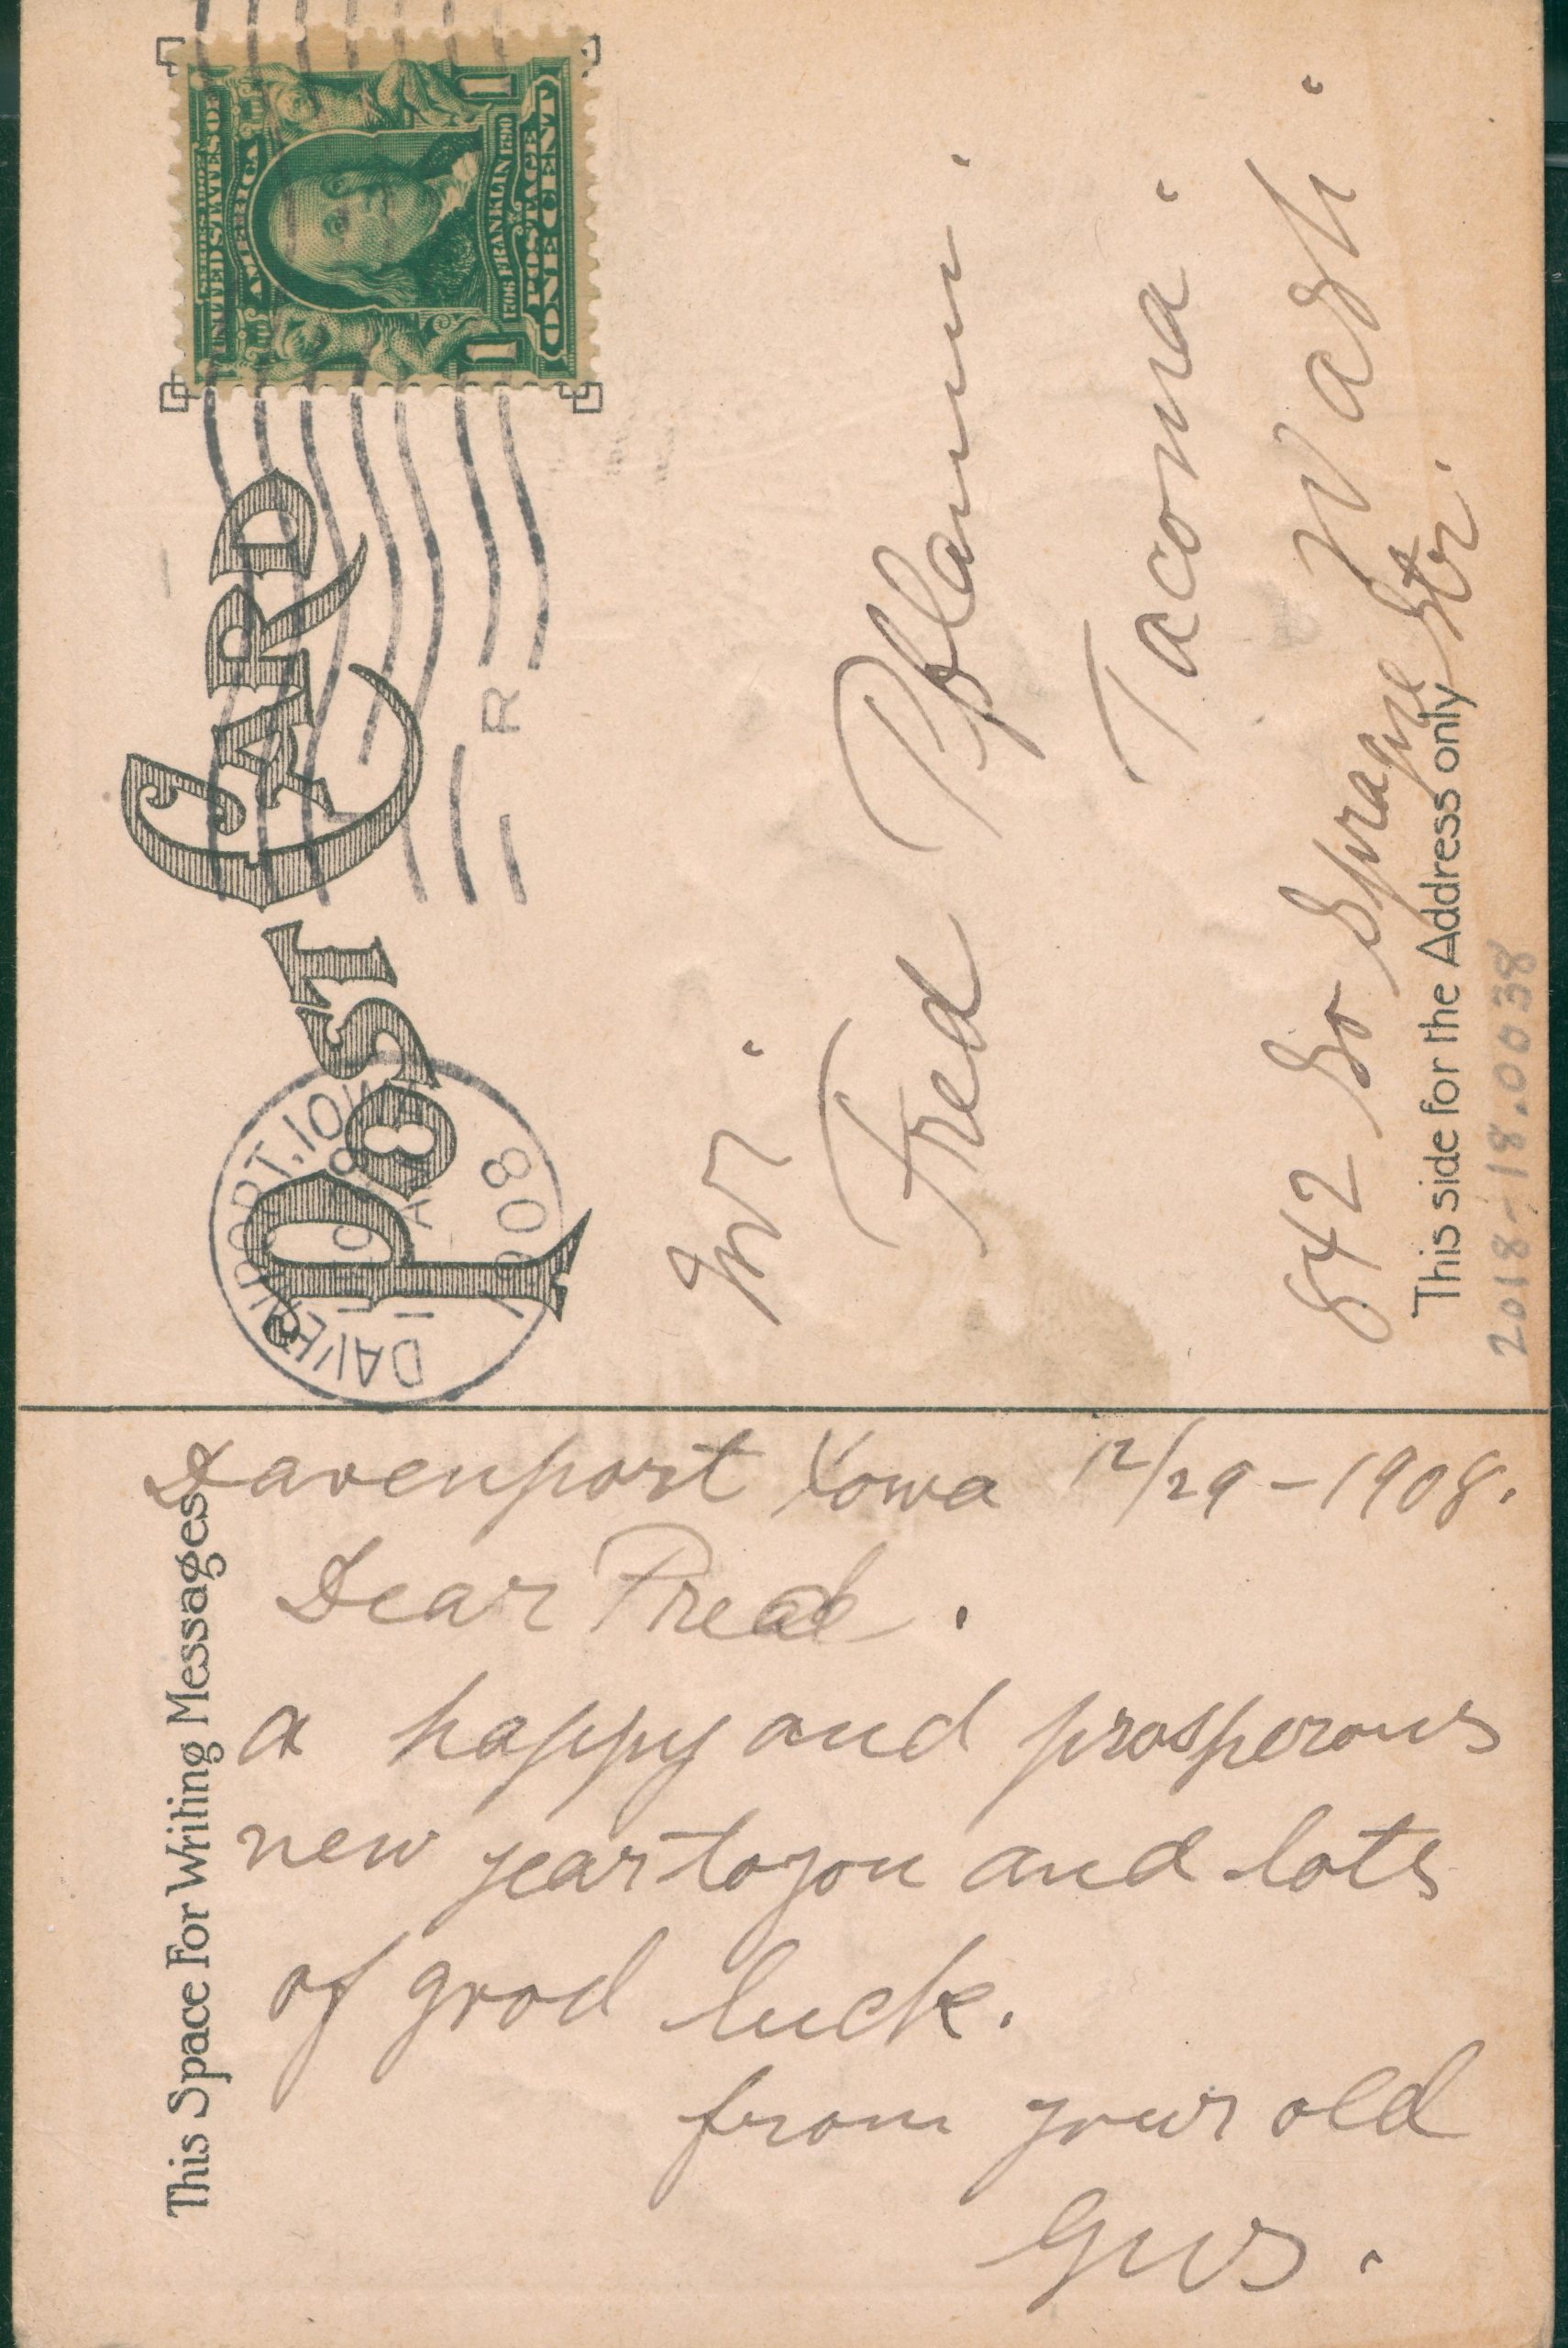 This Space For Writing Messages
Davenport Iowa 12/29-1908.
Dear Fred.
a happy and prosperous
new year to you and lots
of good luck.
from your old
Gus.
POST CARD
DAVENPORT, IOWA
1908
R
SERIES 1902
UNITED STATES OF
AMERICA
1706 FRANKLIN 1790
POSTAGE
ONE CENT
1 1
Mr.
Fred Pflaum.
Tacoma.
Wash.
842 So Sprague Str.
This side for the Address only
2018-18.0038